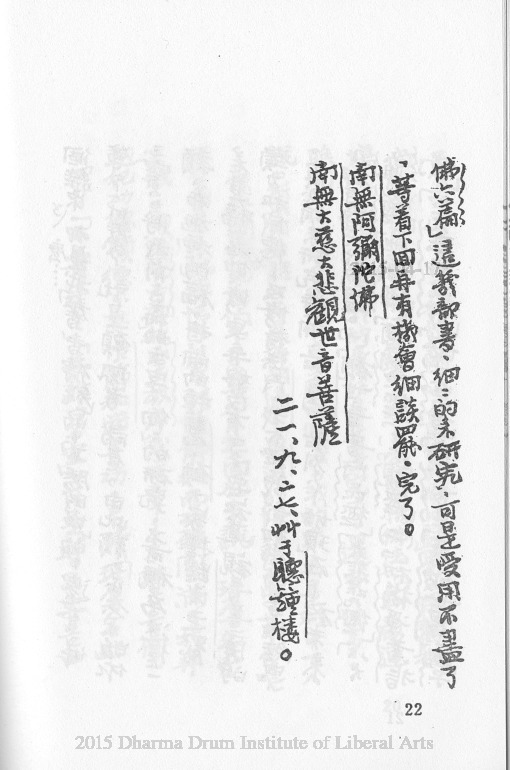 佛六篇」這幾部書、細:的來研究、可是受用不盡了
、等着下回再有機會細談罷、完了。
南無阿彌陀佛
南無大慈大悲觀世音菩薩
二一、九、二七、艸于聽鐘樓。
22
2015 Dharma Drum Institute of Liberal Arts